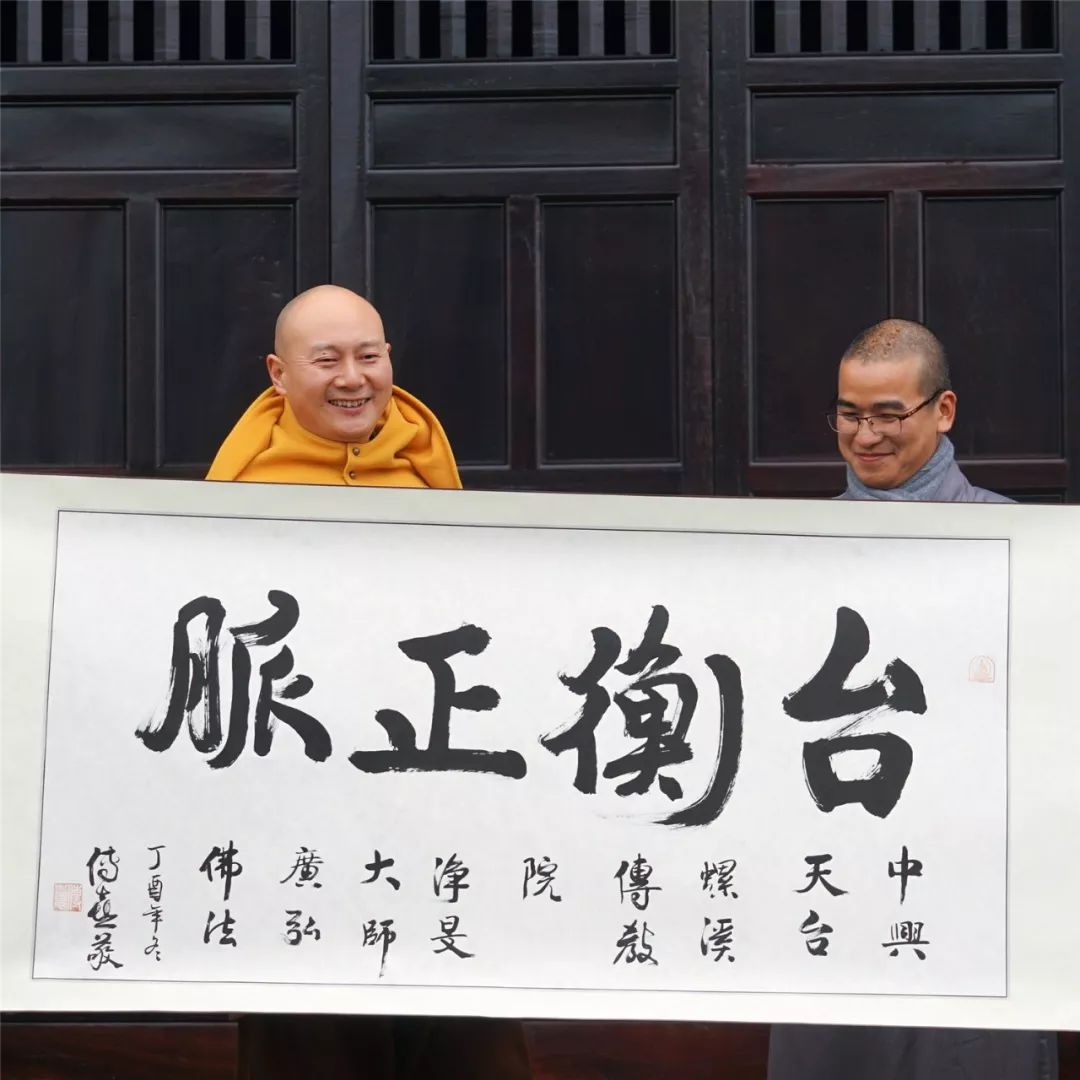 台衡正脈
中興
天台
螺溪
傳教
院
淨旻
大師
廣弘
佛法
丁酉年冬
傳喜敬